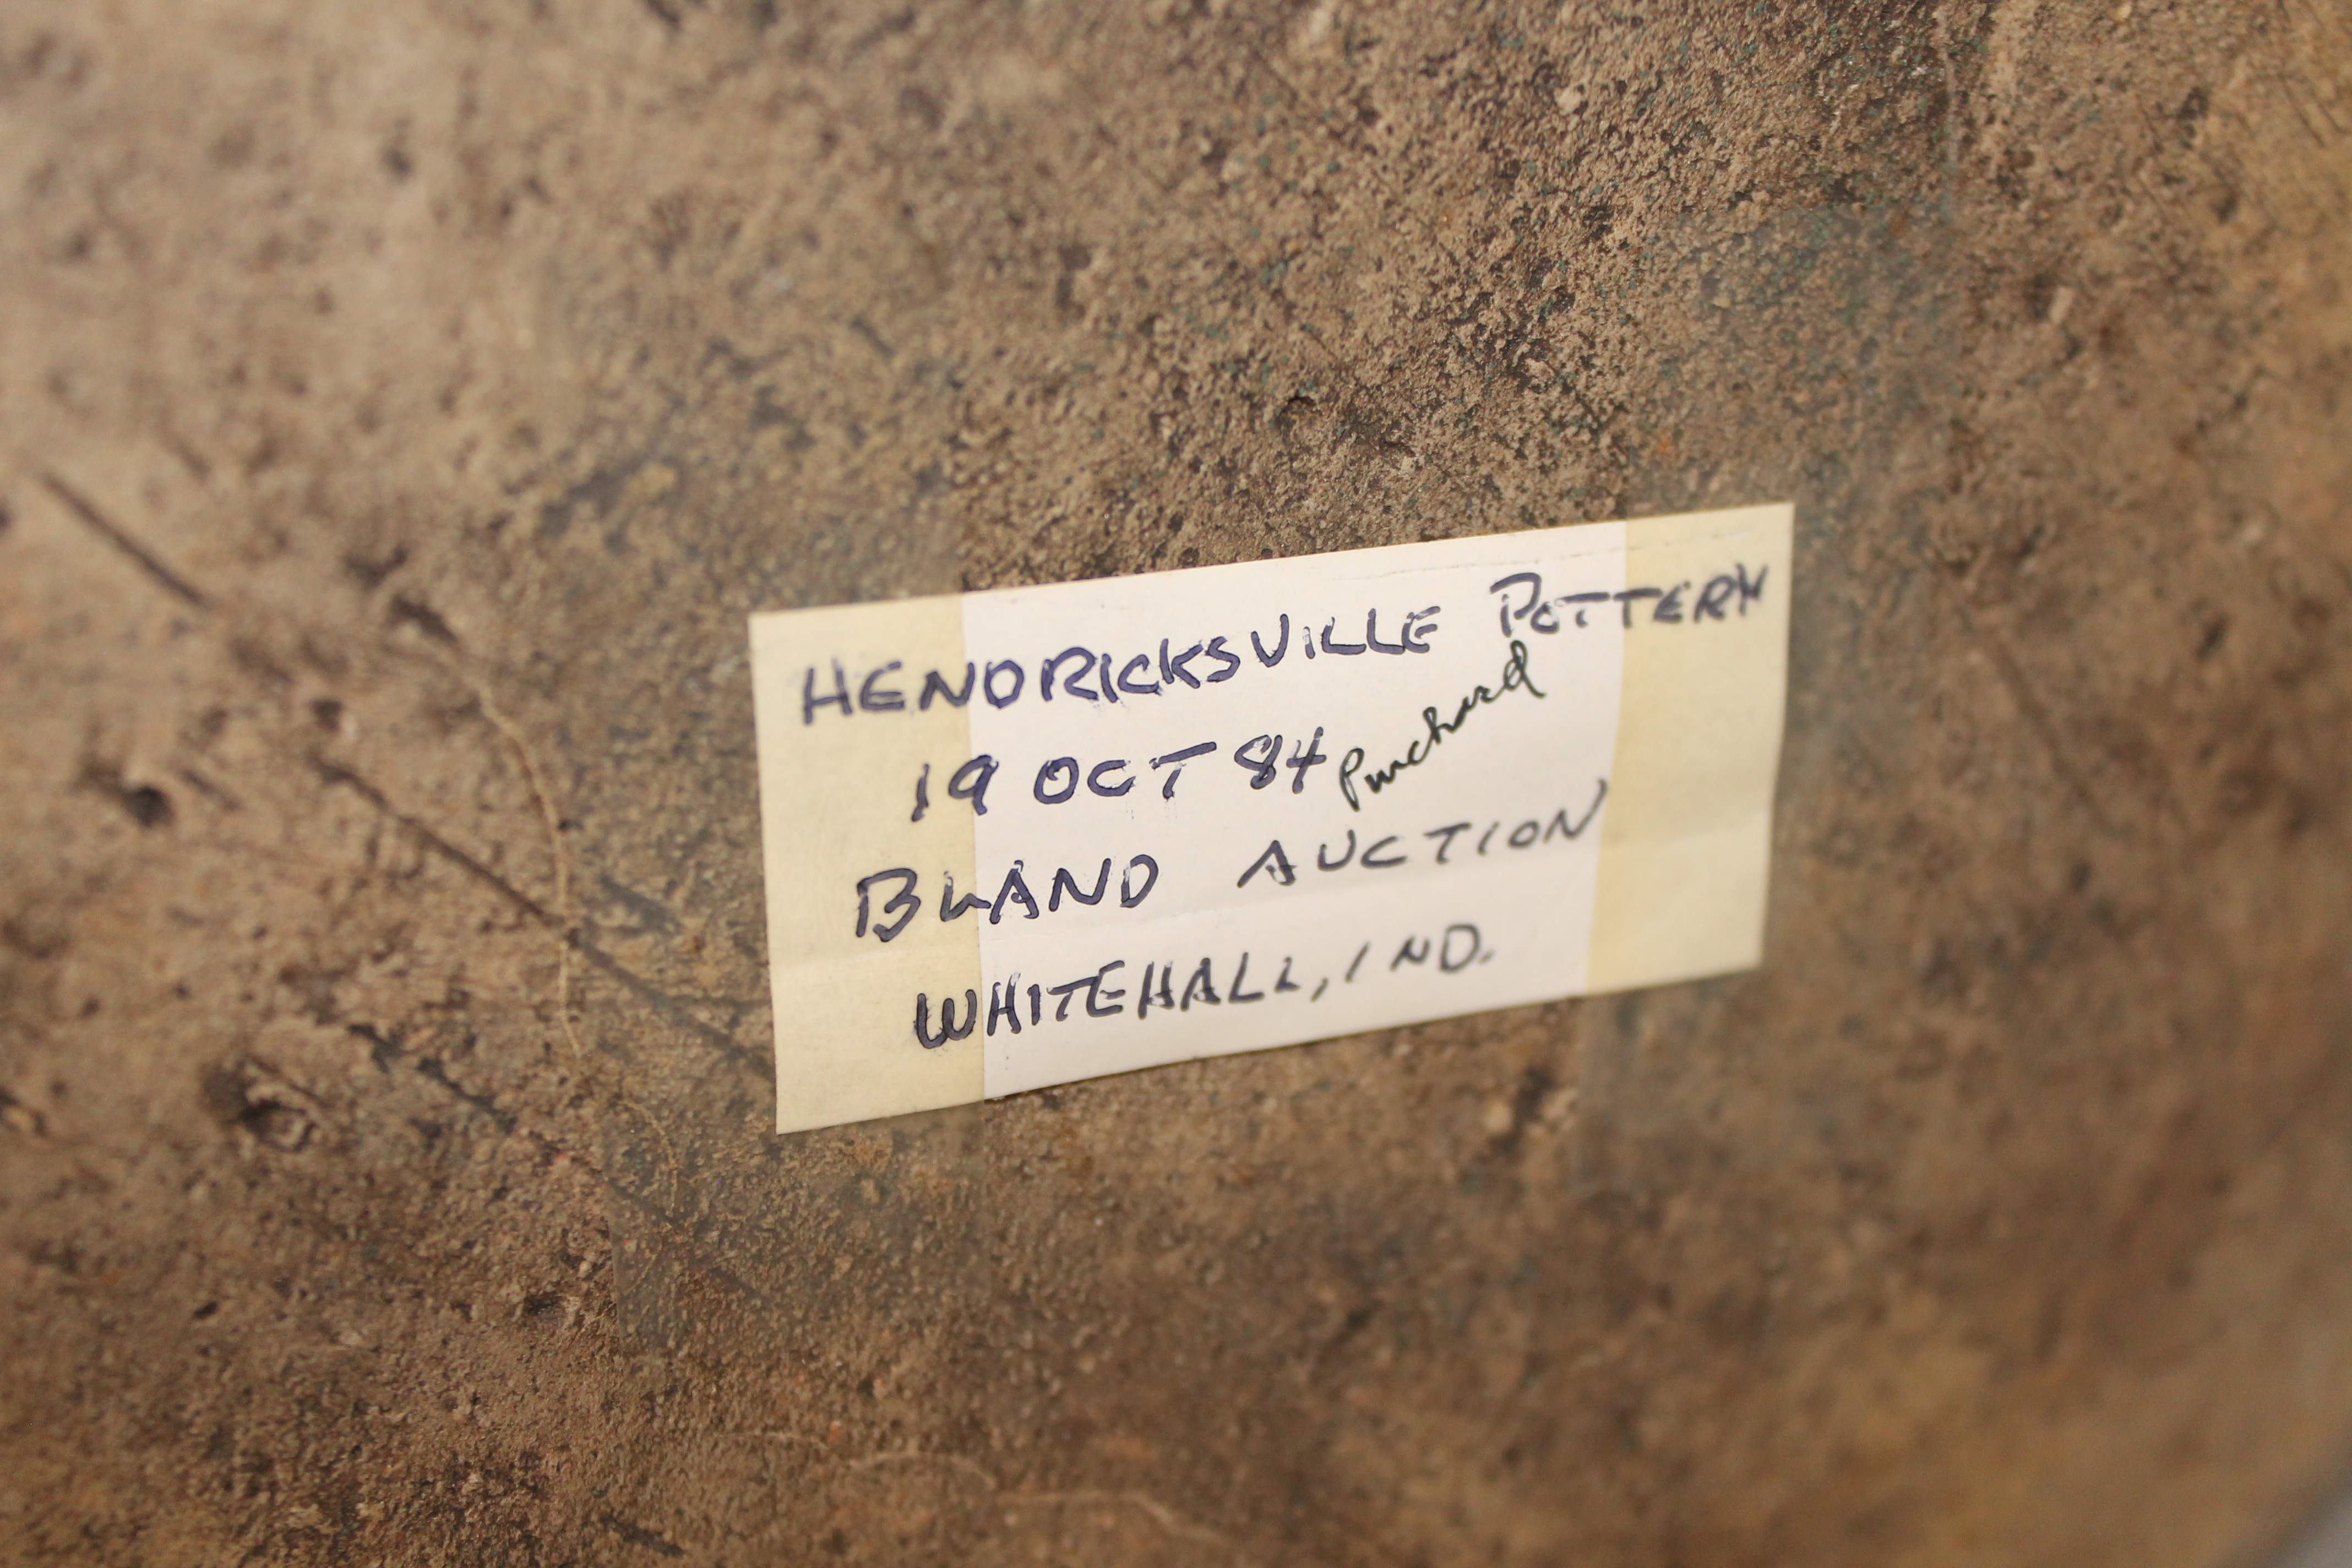 HENDRICKSVILLE POTTERY
19 OCT 84 Purchased
BLAND AUCTION
WHITEHALL, IND.